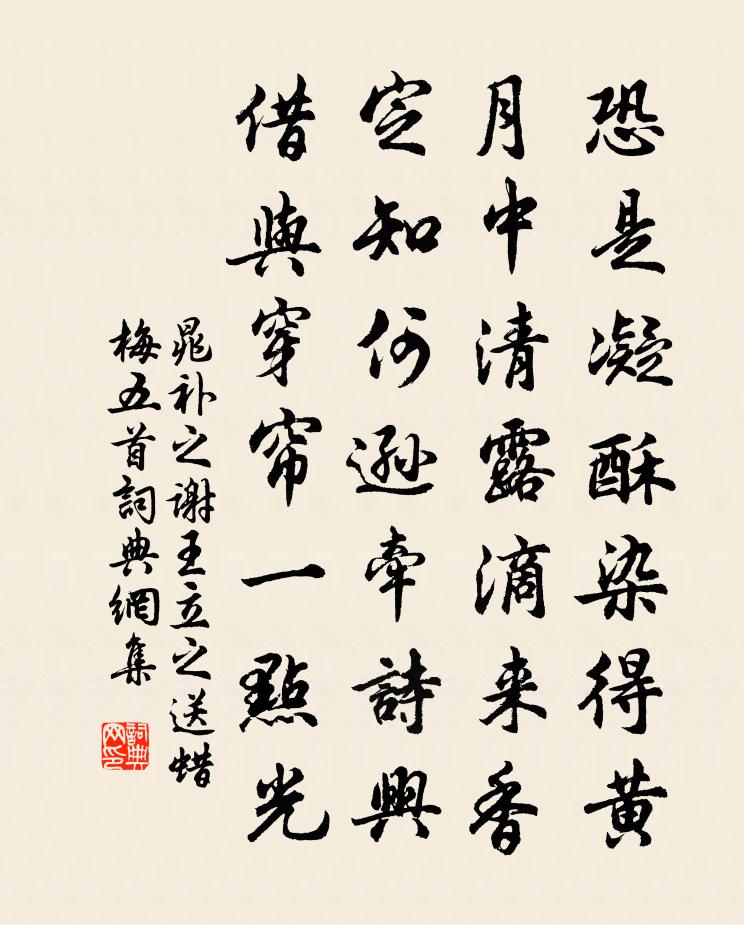 恐是凝酥染得黄
月中清露滴来香
定知何遜牽詩興
借與穿帘一點光
晁补之謝王立之送蜡
梅五首詞典網集
詞典网印